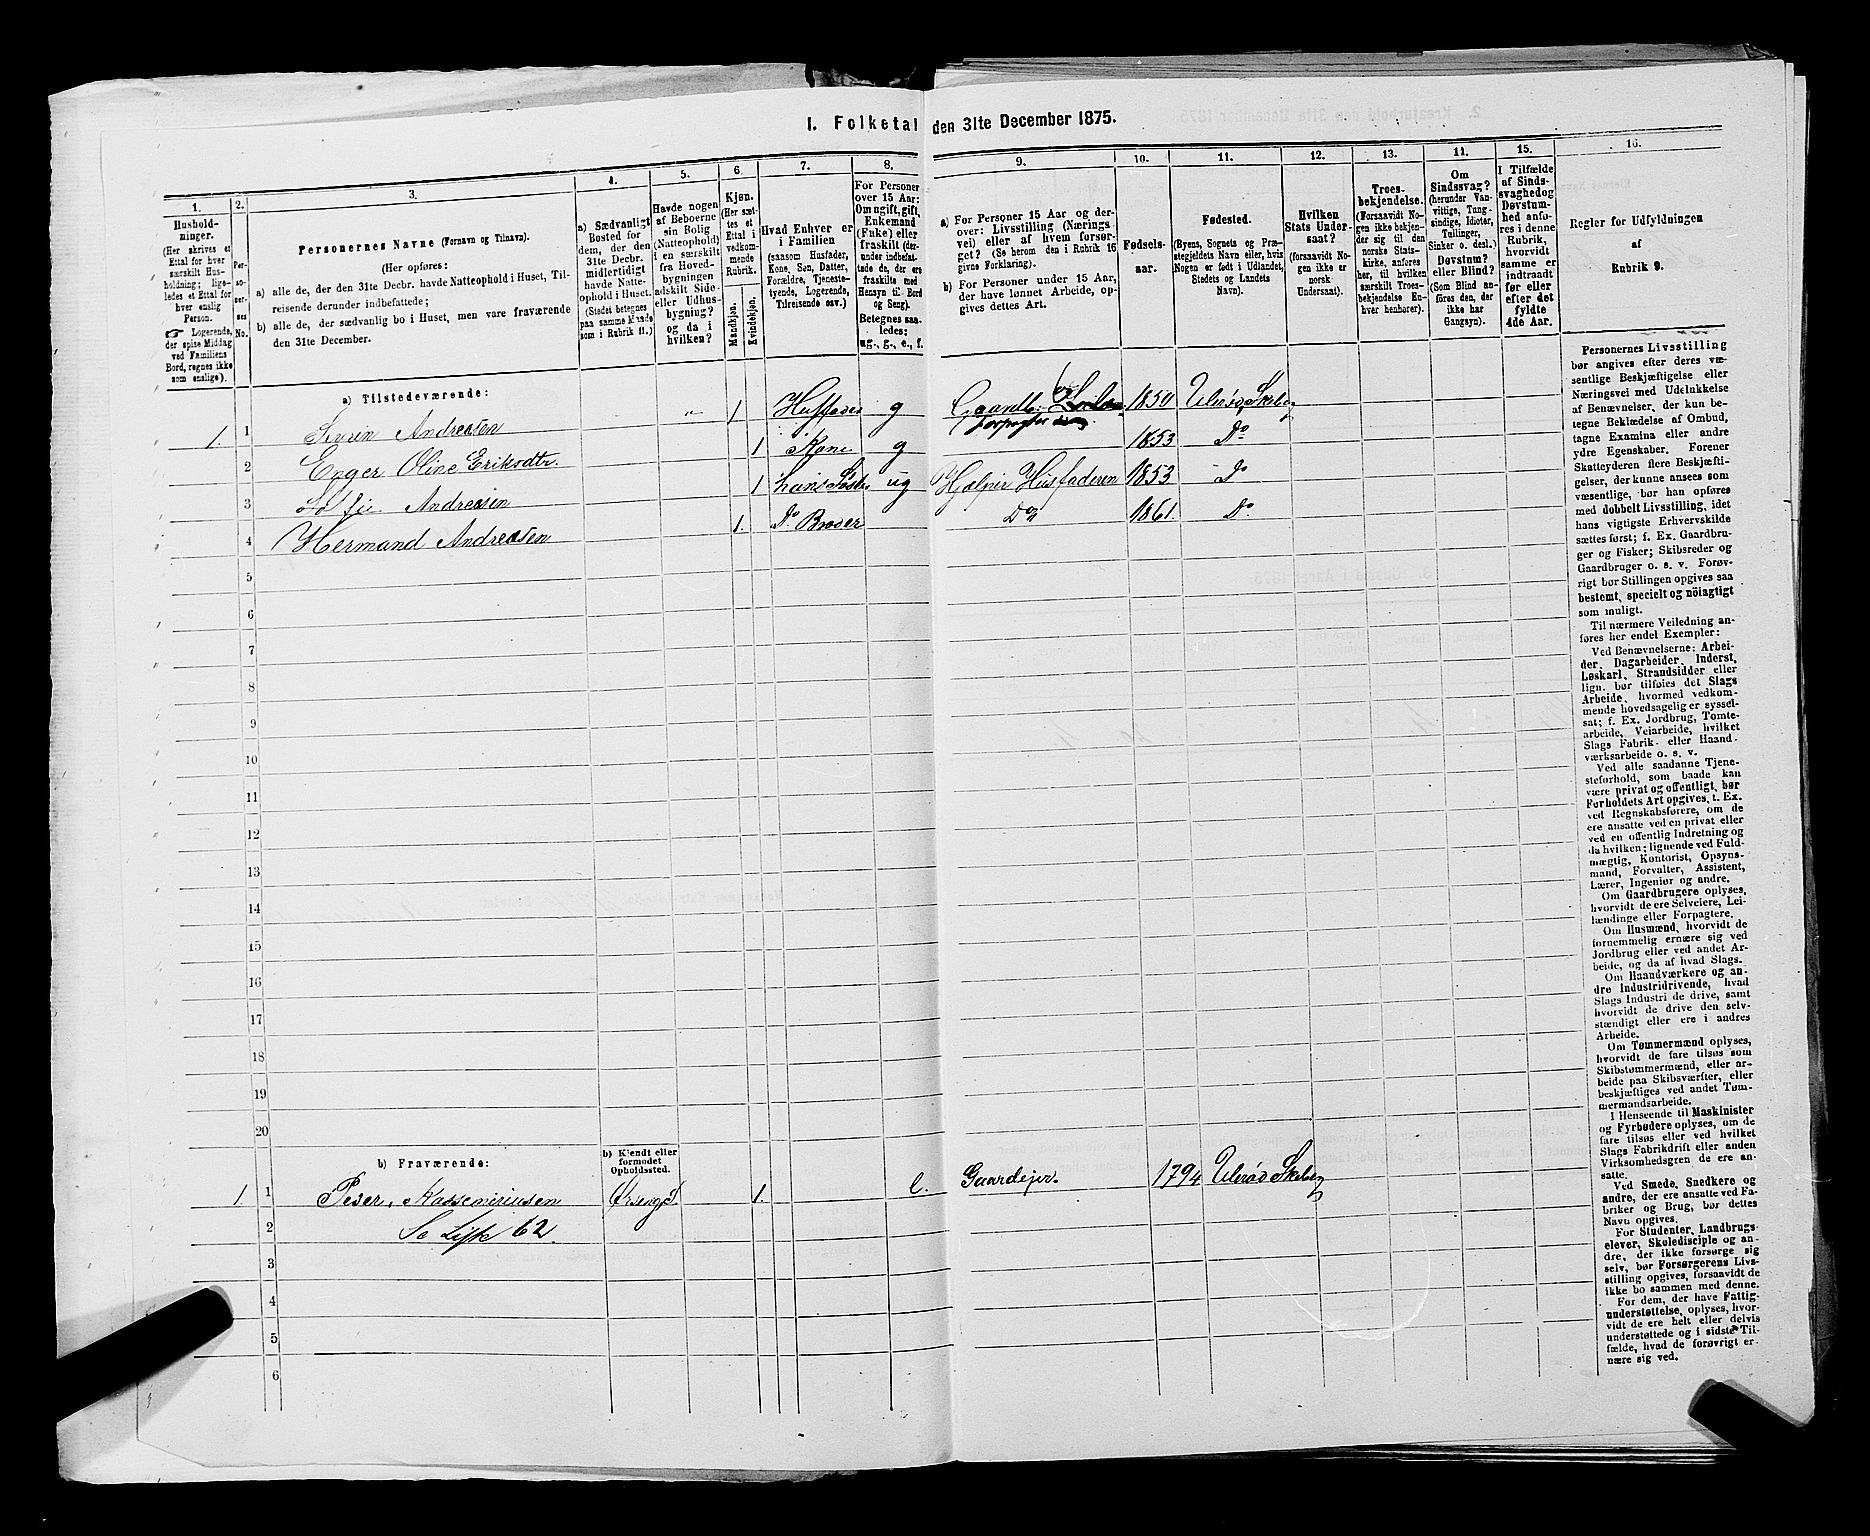 1. Folketal den 31te December 1875.
1.
Hushold-
ninger.
(Her skrives et
Ettal for hver
særskilt Hus-
holdning; lige-
ledes et Ettal for
hver enslig
Person.
☞ Logerende,
der spise Middag
ved Familiens
Bord, regnes ikke
som enslige).
2.
Per-
so-
ner-
nes
No.
3.
Personernes Navne (Fornavn og Tilnavn).
(Her opføres:
a) alle de, der den 31te Decbr. havde Natteophold i Huset, Til-
reisende derunder indbefattede;
b) alle de, der sædvanlig bo i Huset, men vare fraværende
den 31te December.
4.
a) Sædvanligt
Bosted for
dem, der den
31te Decbr.
midlertidigt
havde Natte-
ophold i Huset.
(Stedet betegnes
paa samme Maade
som i Rubrik 11.)
5.
Havde nogen
af Beboerne
sin Bolig
(Natteophold)
i en særskilt
fra Hoved-
bygningen
adskilt Side-
eller Udhus-
bygning?
og da i
hvilken?
6.
Kjøn.
(Her sæt-
tes et
Ettal i
vedkom-
mende
Rubrik.
Mandkjøn.
Kvindekjøn.
7.
Hvad Enhver er
i Familien
(saasom Husfader,
Kone, Søn, Datter,
Forældre, Tjeneste-
tyende, Logerende,
Tilreisende osv.)
8.
For Personer
over 15 Aar:
Om ugift, gift,
Enkemand
(Enke) eller
fraskilt (der-
under indbefat-
tede de, der ere
fraskilte med
Hensyn til Bord
og Seng).
Betegnes saa-
ledes:
ug., g., e., f.
9.
a) For Personer 15 Aar og der-
over: Livsstilling (Nærings-
vei) eller af hvem forsør-
get? (Se herom den i Rubrik 16
givne Forklaring).
b) For Personer under 15 Aar,
der have lønnet Arbeide, op-
gives dettes Art.
10.
Fødsels-
aar.
11.
Fødested.
(Byens, Sognets og Præ-
stegjeldets Navn eller, hvis
Nogen er født i Udlandet,
Stedets og Landets
Navn).
12.
Hvilken
Stats Under-
saat?
(forsaavidt No-
gen ikke er
norsk
Undersaat).
13.
Troes-
bekjendelse.
(Forsaavidt No-
gen ikke bekjen-
der sig til den
norske Stats-
kirke, anføres
her, til hvilken
særskilt Troes-
bekjendelse En-
hver henhører).
11.
Om
Sindssvag?
(herunder Van-
vittige, Tung-
sindige, Idioter,
Tullinger,
Sinker o. desl.)
Døvstum?
eller Blind?
(Som Blind an-
føres den, der
ikke har
Gangsyn).
15.
I Tilfælde
af Sinds-
svaghed og
Døvstum-
hed anfø-
res i denne
Rubrik,
hvorvidt
samme er
indtraadt
før eller
efter det
fyldte
4de Aar.
16.
Regler for Udfyldningen
af
Rubrik 9.
a) Tilstedeværende:
1. 1 Severin Andreasen „ 1 Husfader g 1850 Ulerød, Skeberg
2 Enger Oline Eriksdtr. 1 Kone g 1853 Do
3 Sofie Andreasen 1 hans Søster ug Hjælper Husfaderen 1853 Do
4 Hermand Andreasen 1. Do Broder Do 1861. Do
5
6
7
8
9
10
11
12
13
14
15
16
17
18
19
20
b) Fraværende:
b) Kjendt eller
formodet
Opholdssted.
1. 1 Peder 1. e. Gaardejer. 1794 Ulerød Skeberg
2 Se Liste 62.
3
4
5
6
Personernes Livsstilling
bør angives efter deres væ-
sentlige Beskjæftigelse eller
Næringsvei med Udelukkelse
af Benævnelser, der kun be-
tegne Beklædelse af Ombud,
tagne Examina eller andre
ydre Egenskaber. Forener
Skatteyderen flere Beskjæfti-
gelser, der kunne ansees som
væsentlige, bør han opføres
med dobbelt Livsstilling, idet
hans vigtigste Erhvervskilde
sættes først; f. Ex. Gaardbru-
ger og Fisker; Skibsreder og
Gaardbruger o. s. v. Forøv-
rigt bør Stillingen opgives saa
bestemt, specielt og nöiagtigt
som muligt.
Til nærmere Veiledning an-
føres her endel Exempler:
Ved Benævnelserne: Arbei-
der, Dagarbeider, Inderst,
Løskarl, Strandsidder eller
lign. bør tilføies det Slags
Arbeide, hvormed vedkom-
mende hovedsagelig er syssel-
sat; f. Ex. Jordbrug, Tomte-
arbeide, Veiarbeide, hvilket
Slags Fabrik- eller Haand-
værksarbeide o. s. v.
Ved alle saadanne Tjene-
steforhold, som baade kan
være privat og offentligt, bør
Forholdets Art opgives, t. Ex.
ved Regnskabsførere, om de
ere ansatte ved en privat eller
ved en offentlig Indretning og
da hvilken; lignende ved Fuld-
mægtig, Kontorist, Opsyns-
mand, Forvalter, Assistent,
Lærer, Ingeniør og andre.
Om Gaardbrugere oplyses,
hvorvidt de ere Selveiere, Lei-
lændinge eller Forpagtere.
Om Husmænd, hvorvidt de
fornemmelig ernære sig ved
Jordbrug eller ved andet Ar-
beide, og da af hvad Slags.
Om Haandværkere og an-
dre Industridrivende, hvad
Slags Industri de drive, samt
hvorvidt de drive den selv-
stændigt eller ere i andres
Arbeide.
Om Tømmermænd oplyses,
hvorvidt de fare tilsøs som
Skibstømmermænd, eller ar-
beide paa Skibsværfter, eller
beskjæftiges ved andet Tøm-
mermandsarbeide.
I Henseende til Maskinister
og Fyrbødere oplyses, om de
fare tilsøs eller ved hvilket
Slags Fabrikdrift eller anden
Virksomhedsgren de ere an-
satte.
Ved Smede, Snedkere og
andre, der ere ansatte ved Fa-
briker og Brug, bør dettes
Navn opgives.
For Studenter, Landbrugs-
elever, Skoledisciple og an-
dre, der ikke forsørge sig
selv, bør Forsørgerens Livs-
stilling opgives, forsaavidt de
ikke bo sammen med denne.
For dem, der have Fattig-
understøttelse, oplyses, hvor-
vidt de ere helt eller delvis
understøttede og i sidste Til-
fælde, hvad de forøvrigt er-
nære sig ved.